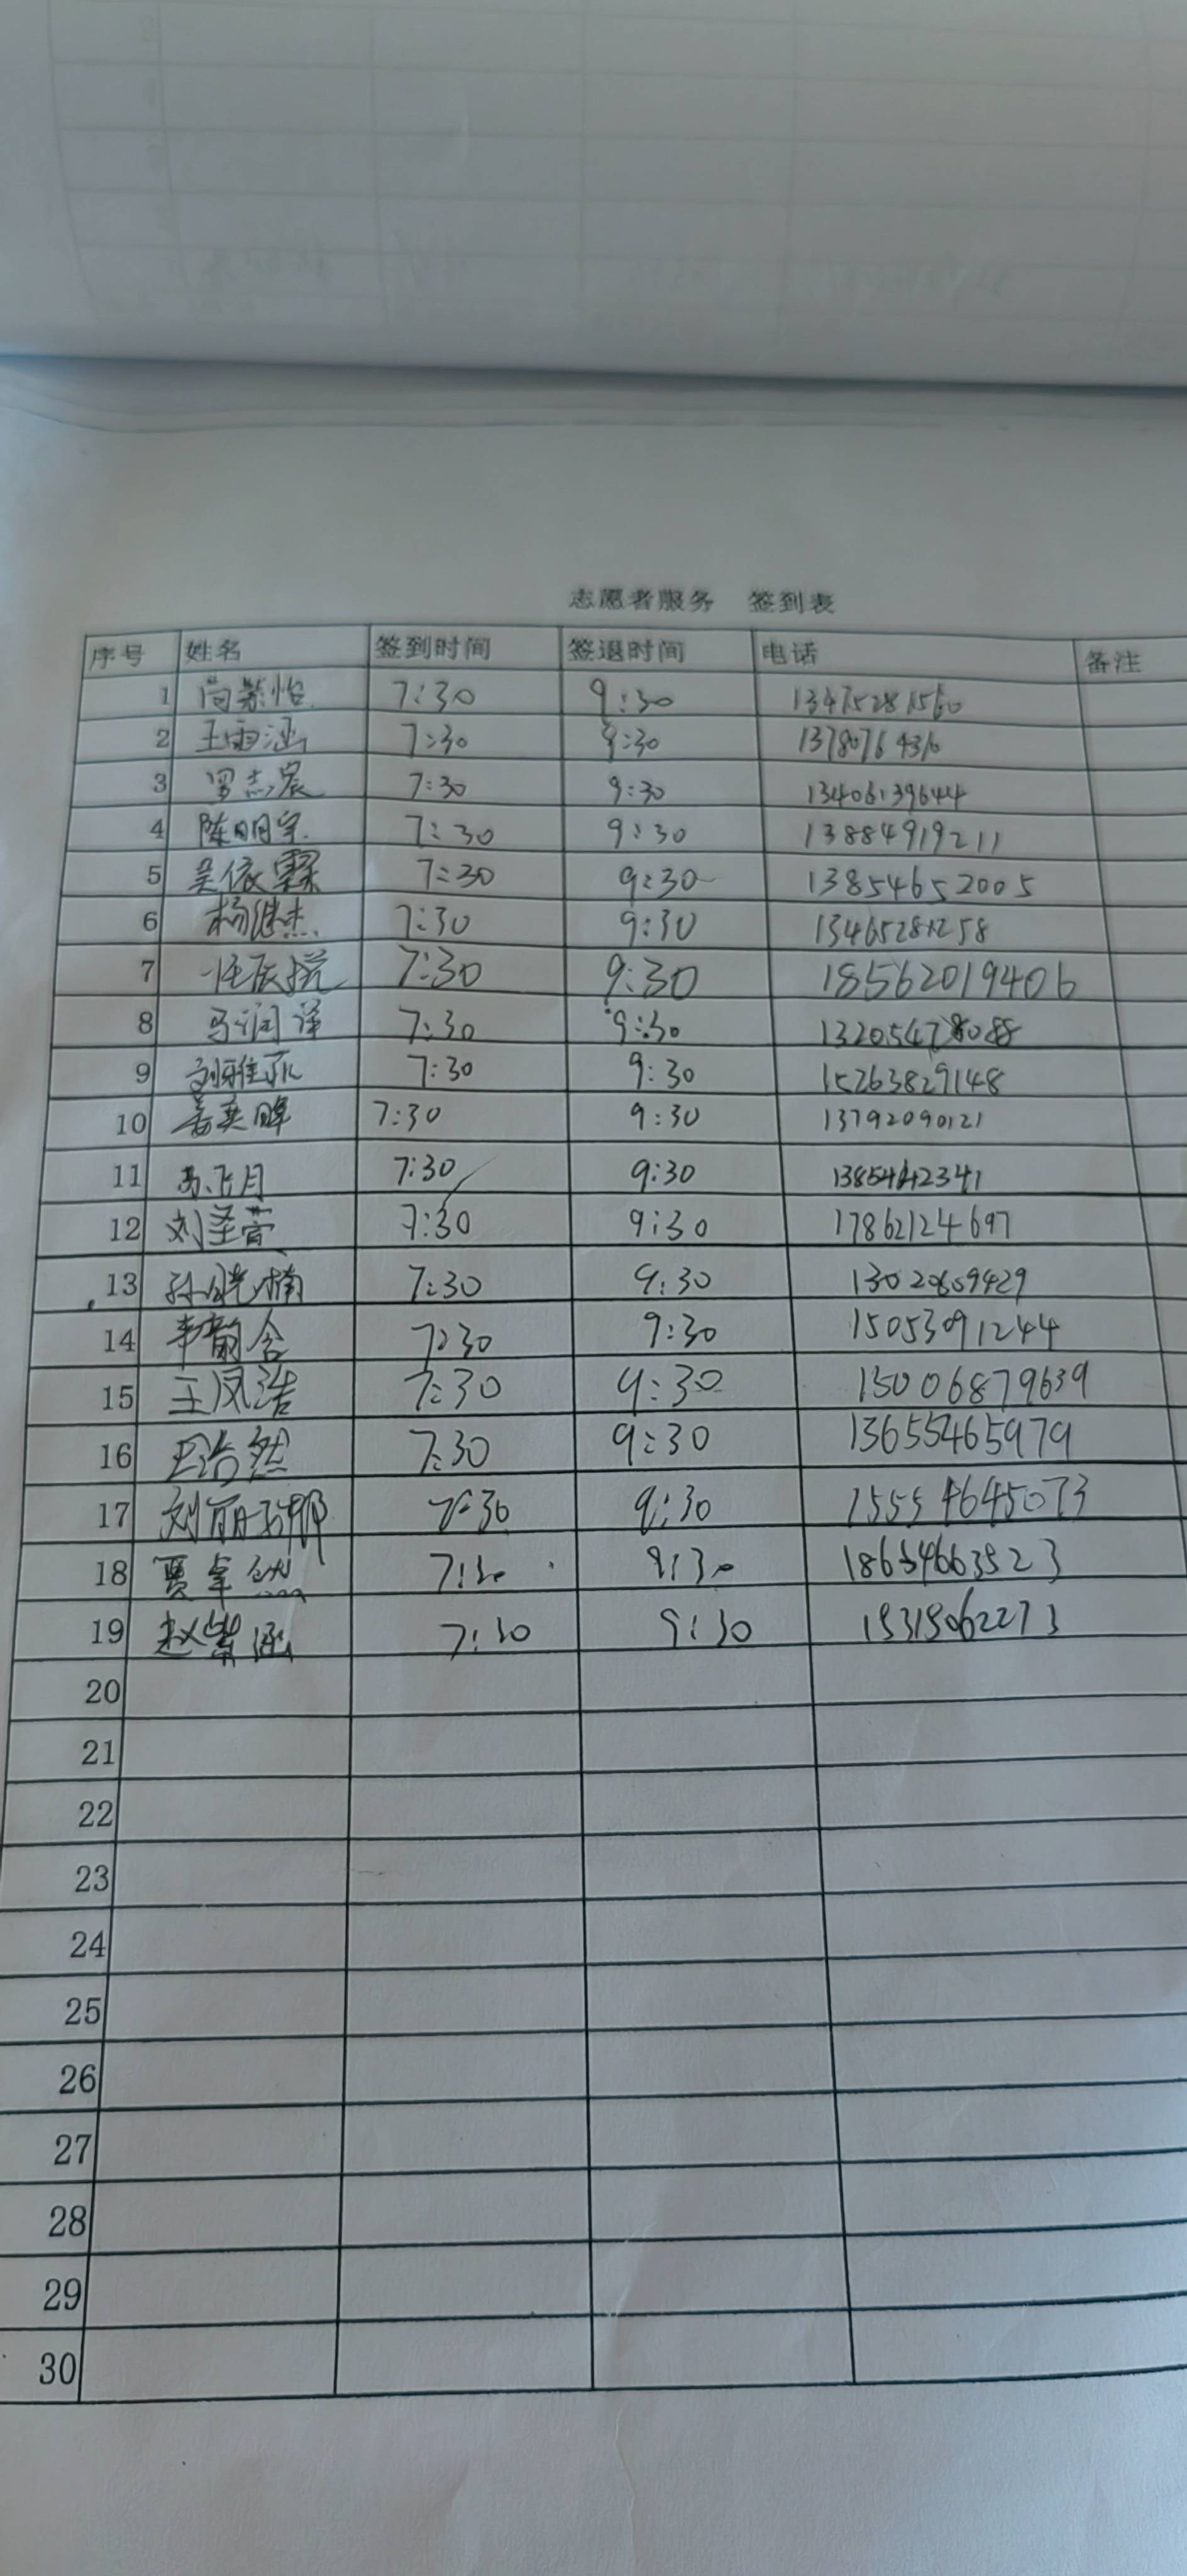 志愿者服务 签到表
序号 姓名 签到时间 签退时间 电话 备注
1 尚紫怡 7:30 9:30 13475281560
2 王雨涵 7:30 9:30 1378076436
3 罗志宸 7:30 9:30 13406139644
4 陈明宇 7:30 9:30 13884919211
5 吴依霖 7:30 9:30 13854652005
6 杨继杰 7:30 9:30 13465281258
7 任辰 7:30 9:30 18562019406
8 马润泽 7:30 9:30
9 刘雅 7:30 9:30 15263829148
10 姜英晖 7:30 9:30 13792090121
11 苏飞月 7:30 9:30
12 刘圣萱 7:30 9:30 17862124697
13 孙晓楠 7:30 9:30 13020609429
14 李韵含 7:30 9:30 15053091244
15 王凤浩 7:30 9:30 15006879639
16 王浩然 7:30 9:30 13655465979
17 刘丽娜 7:30 9:30 15554645073
18 贾拿 7:30 9:30 18654663523
19 赵紫涵 7:30 9:30 15315062273
20
21
22
23
24
25
26
27
28
29
30